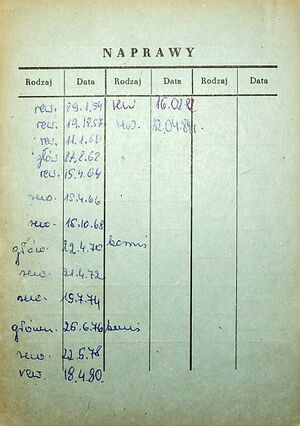 NAPRAWY
Rodzaj Data Rodzaj Data Rodzaj Data
rew. 29.1.54 rew 16.02.82
rew. 19.12.57 rew. 12.04.84r.
rew. 11.1.60
głów 27.2.62
rew. 15.4.64
rew. 15.4.66
rew. 15.10.68
główn. 22.4.70
rew. 21.4.72
rew. 19.7.74
główn. 26.6.76
rew. 22.6.78
rew. 18.4.80.